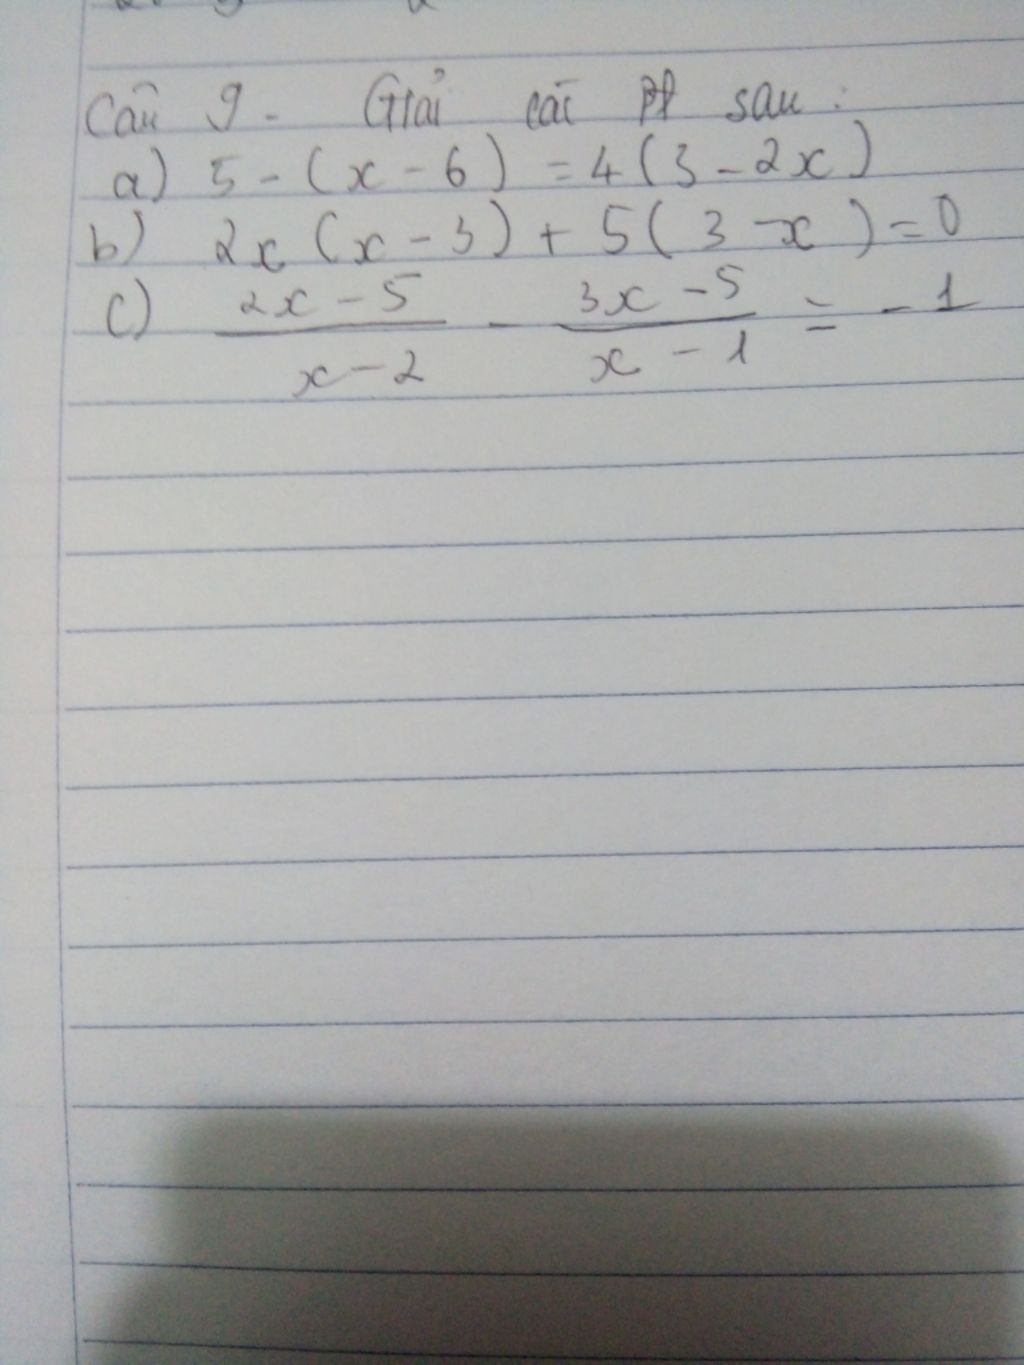 Câu 9. Giải các PT sau:
a) 5 - (x - 6) = 4(3 - 2x)
b) 2x(x - 3) + 5(3 - x) = 0
c) \frac{2x - 5}{x - 2} - \frac{3x - 5}{x - 1} = -1